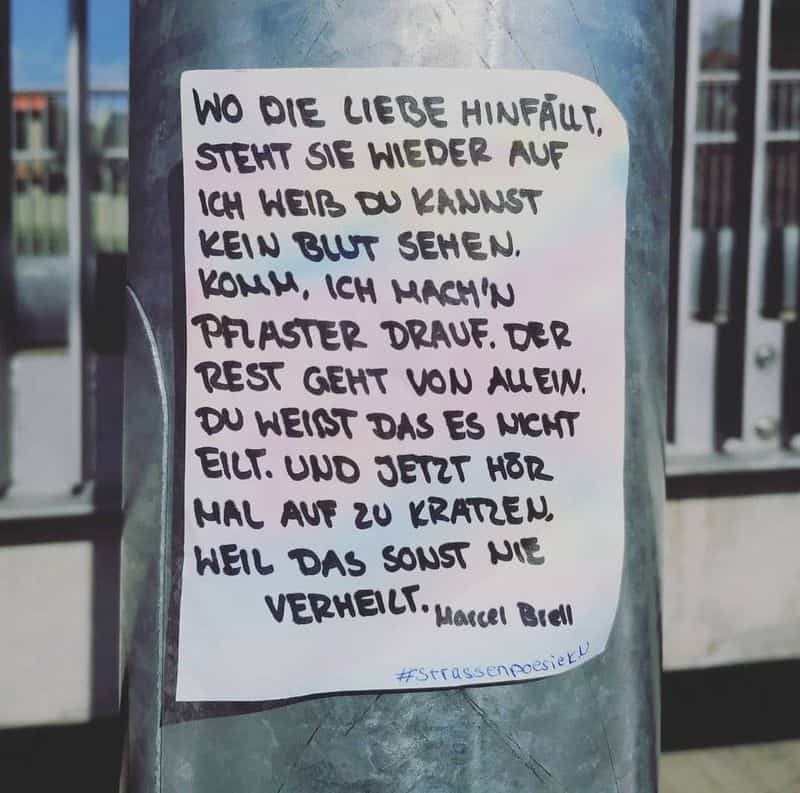 WO DIE LIEBE HINFÄLLT,
STEHT SIE WIEDER AUF
ICH WEIß DU KANNST
KEIN BLUT SEHEN.
KOMM, ICH MACH'N
PFLASTER DRAUF. DER
REST GEHT VON ALLEIN.
DU WEIßT DAS ES NICHT
EILT. UND JETZT HÖR
MAL AUF ZU KRATZEN.
WEIL DAS SONST NIE
VERHEILT. Marcel Brell
#StrassenpoesieKN